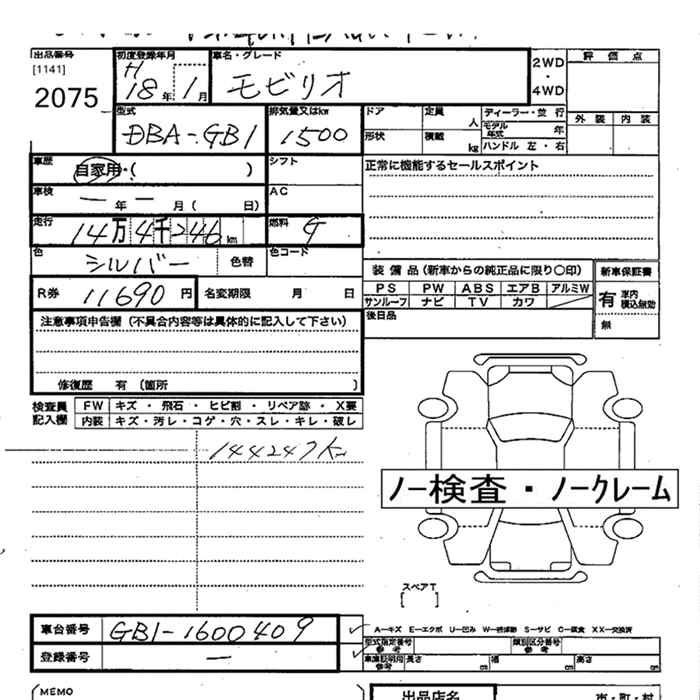 出品番号
[1141]
2075
初度登録年月
H
18年 1月
車名・グレード
モビリオ
2WD
・
4WD
評価点
外装 内装
型式
DBA-GB1
排気量又はkw
1500
ドア
形状
定員
人
積載
kg
ディーラー・並行
モデル年式 年
ハンドル 左・右
車歴
自家用・( )
シフト
正常に機能するセールスポイント
車検
— 年 — 月( 日)
AC
走行
14万4千246km
燃料
G
色
シルバー
色替
色コード
R券 11690円
名変期限 月 日
装備品(新車からの純正品に限り○印)
PS PW ABS エアB アルミW
サンルーフ ナビ TV カワ
後日品
新車保証書
有 車内積込無効
無
注意事項申告欄(不具合内容等は具体的に記入して下さい)
修復歴 有(箇所 )
検査員
記入欄
FW キズ・飛石・ヒビ割・リペア跡・X要
内装 キズ・汚レ・コゲ・穴・スレ・キレ・破レ
144247km
ノー検査・ノークレーム
スペアT
車台番号 GB1-1600409
登録番号 —
A—キズ E—エクボ U—凹み W—補修跡 S—サビ C—腐食 XX—交換済
型式指定番号
参考
類別区分番号
参考
車庫証明用
参考
長さ cm 幅 cm 高さ cm
MEMO
出品店名
市・町・村